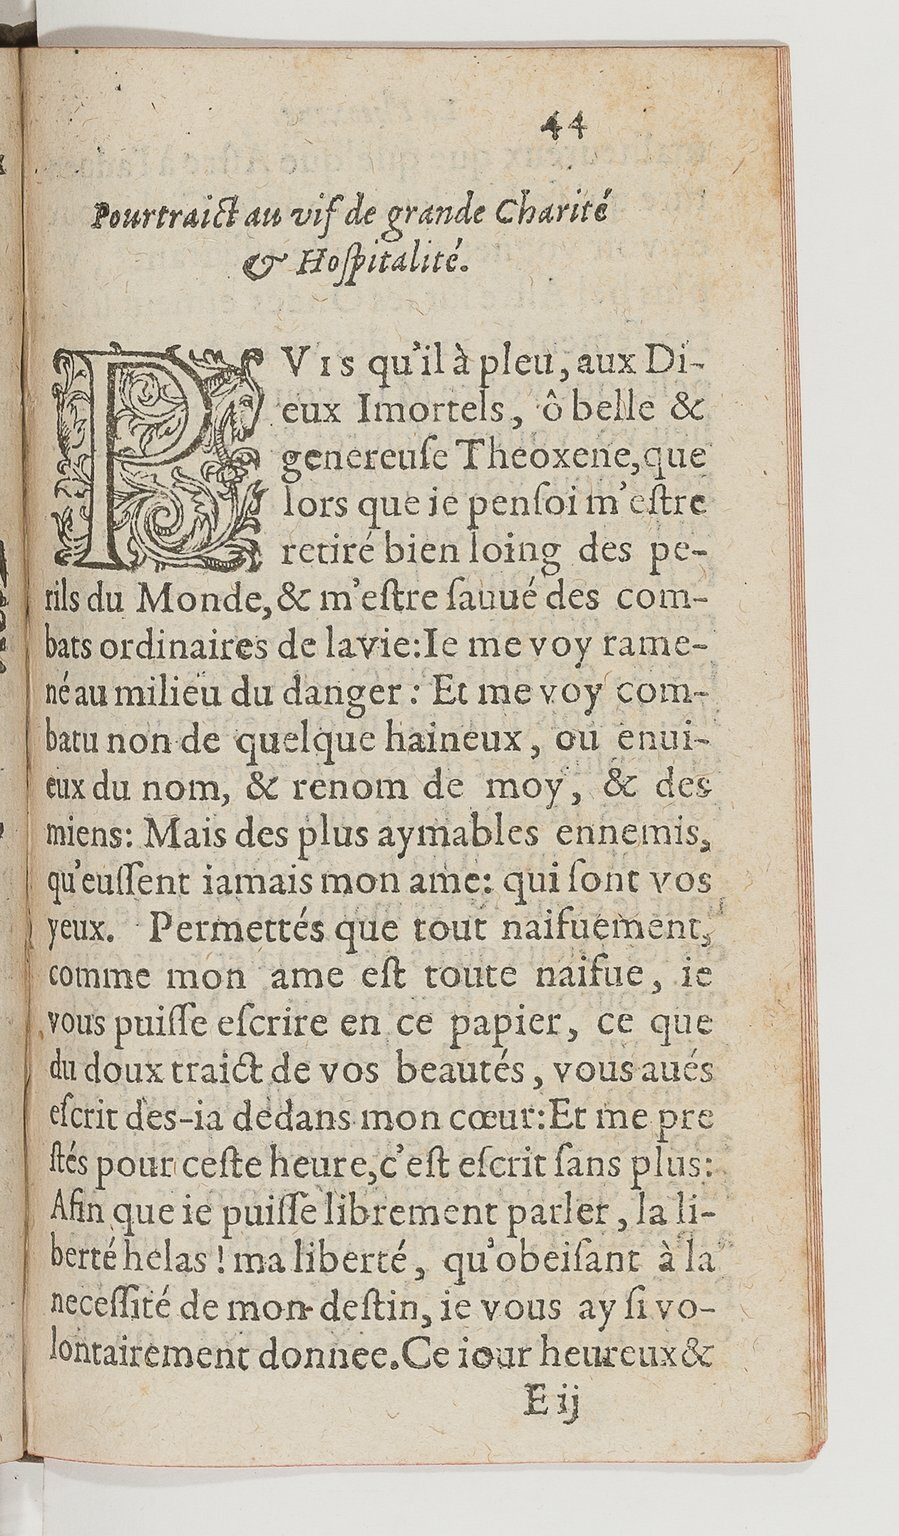 44
Pourtraict au vif de grande Charité
& Hoſpitalité.
PVIS qu'il à pleu, aux Di-
eux Imortels, ô belle &
genereuſe Theoxene, que
lors que ie penſoi m'eſtre
retiré bien loing des pe-
rils du Monde, & m'eſtre ſauué des com-
bats ordinaires de la vie: Ie me voy rame-
né au milieu du danger : Et me voy com-
batu non de quelque haineux, ou enui-
eux du nom, & renom de moy, & des
miens: Mais des plus aymables ennemis,
qu'euſſent iamais mon ame: qui ſont vos
yeux. Permettés que tout naifuement,
comme mon ame eſt toute naifue, ie
vous puiſſe eſcrire en ce papier, ce que
du doux traict de vos beautés, vous aués
eſcrit des-ia dedans mon cœur: Et me pre
ſtés pour ceſte heure, c'eſt eſcrit ſans plus:
Afin que ie puiſſe librement parler, la li-
berté helas ! ma liberté, qu'obeiſant à la
neceſſité de mon deſtin, ie vous ay ſi vo-
lontairement donnee. Ce iour heureux &
E ij